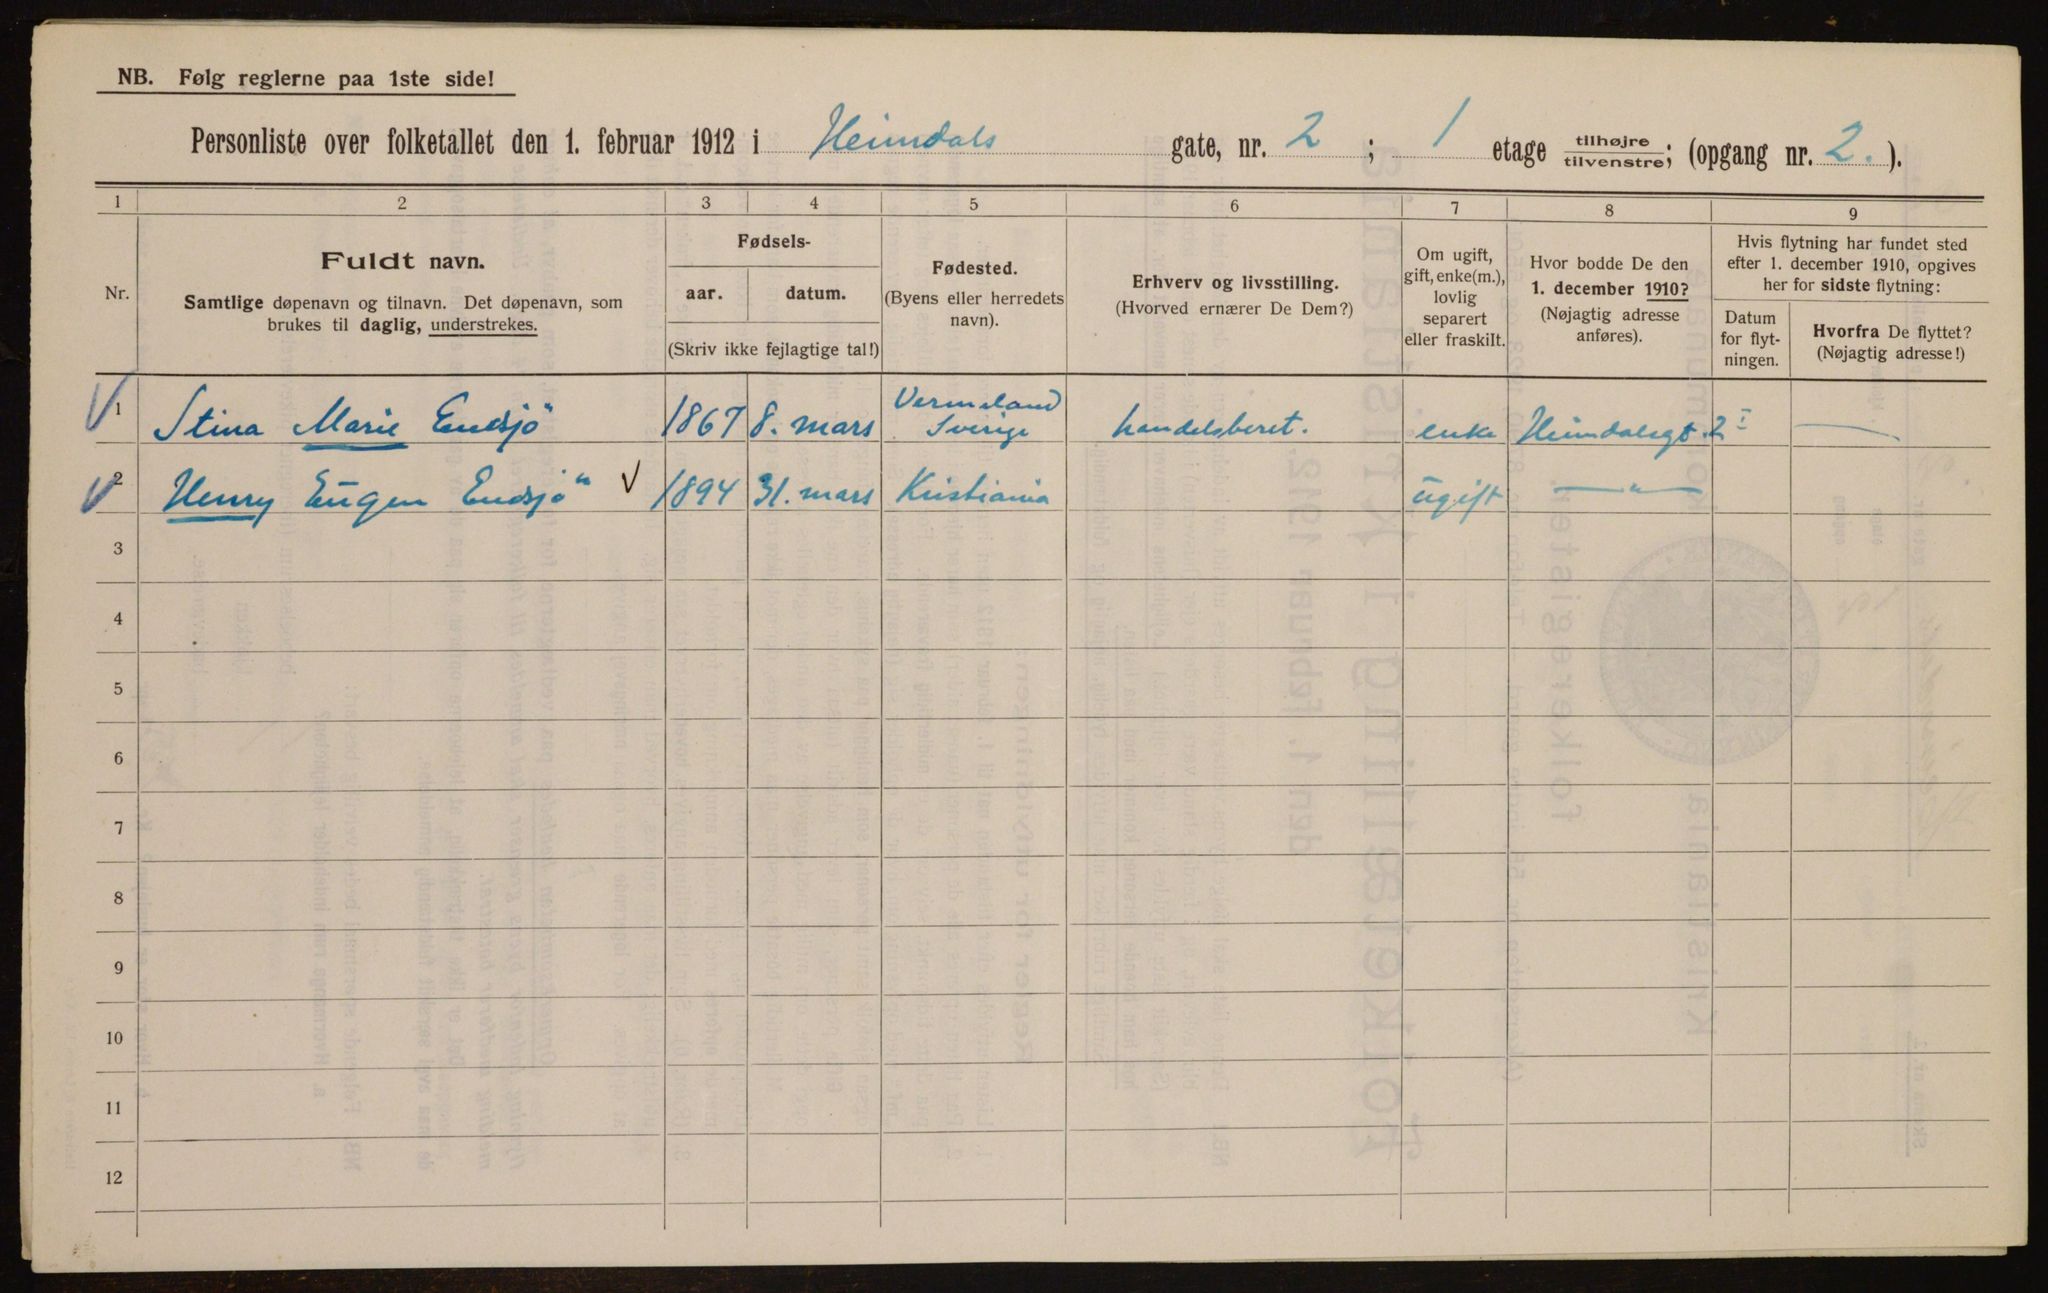 NB. Følg reglerne paa 1ste side!
Personliste over folketallet den 1. februar 1912 i Heimdals gate, nr. 2 ; 1 etage tilhøjre/tilvenstre; (opgang nr. 2. ).
1 2 3 4 5 6 7 8 9
Nr.
Fuldt navn.
Samtlige døpenavn og tilnavn. Det døpenavn, som
brukes til daglig, understrekes.
Fødsels-
aar. datum.
(Skriv ikke fejlagtige tal!)
Fødested.
(Byens eller herredets
navn).
Erhverv og livsstilling.
(Hvorved ernærer De Dem?)
Om ugift,
gift, enke(m.),
lovlig
separert
eller fraskilt.
Hvor bodde De den
1. december 1910?
(Nøjagtig adresse
anføres).
Hvis flytning har fundet sted
efter 1. december 1910, opgives
her for sidste flytning:
Datum
for flyt-
ningen.
Hvorfra De flyttet?
(Nøjagtig adresse!)
1 Stina Marie Endsjö 1867 8. mars Vermeland Sverige handelsberet. enke Heimdalsgt. 2 I —
2 Henry Eugen Endsjö V 1894 31. mars Kristiania ugift —"—
3
4
5
6
7
8
9
10
11
12